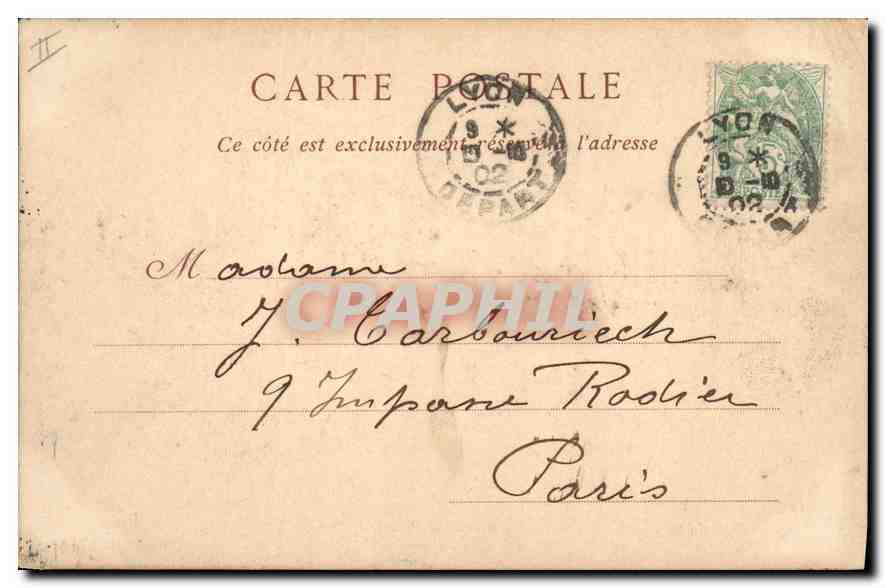 II
CARTE POSTALE
Ce côté est exclusivement réservé à l'adresse
LYON
9 *
5 - 5
02
DEPART
LYON
9 *
5 - 5
02
Madame
CPAPHIL
J. Carbouriech
9 Impasse Rodier
Paris